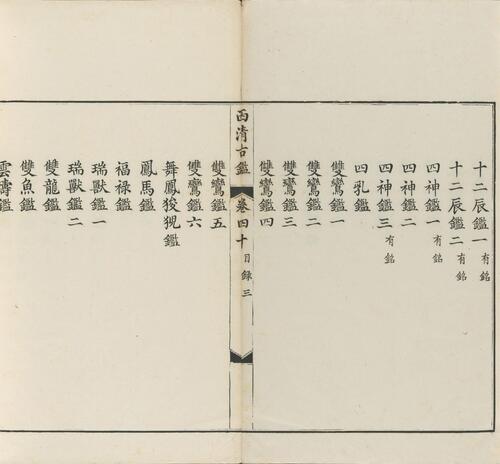 十二辰鑑一有銘
十二辰鑑二有銘
四神鑑一有銘
四神鑑二
四神鑑三有銘
四乳鑑
雙鸞鑑一
雙鸞鑑二
雙鸞鑑三
雙鸞鑑四
西清古鑑 卷四十 目錄 三
雙鸞鑑五
雙鸞鑑六
舞鳳狻猊鑑
鳳馬鑑
福祿鑑
瑞獸鑑一
瑞獸鑑二
雙龍鑑
雙魚鑑
雲濤鑑